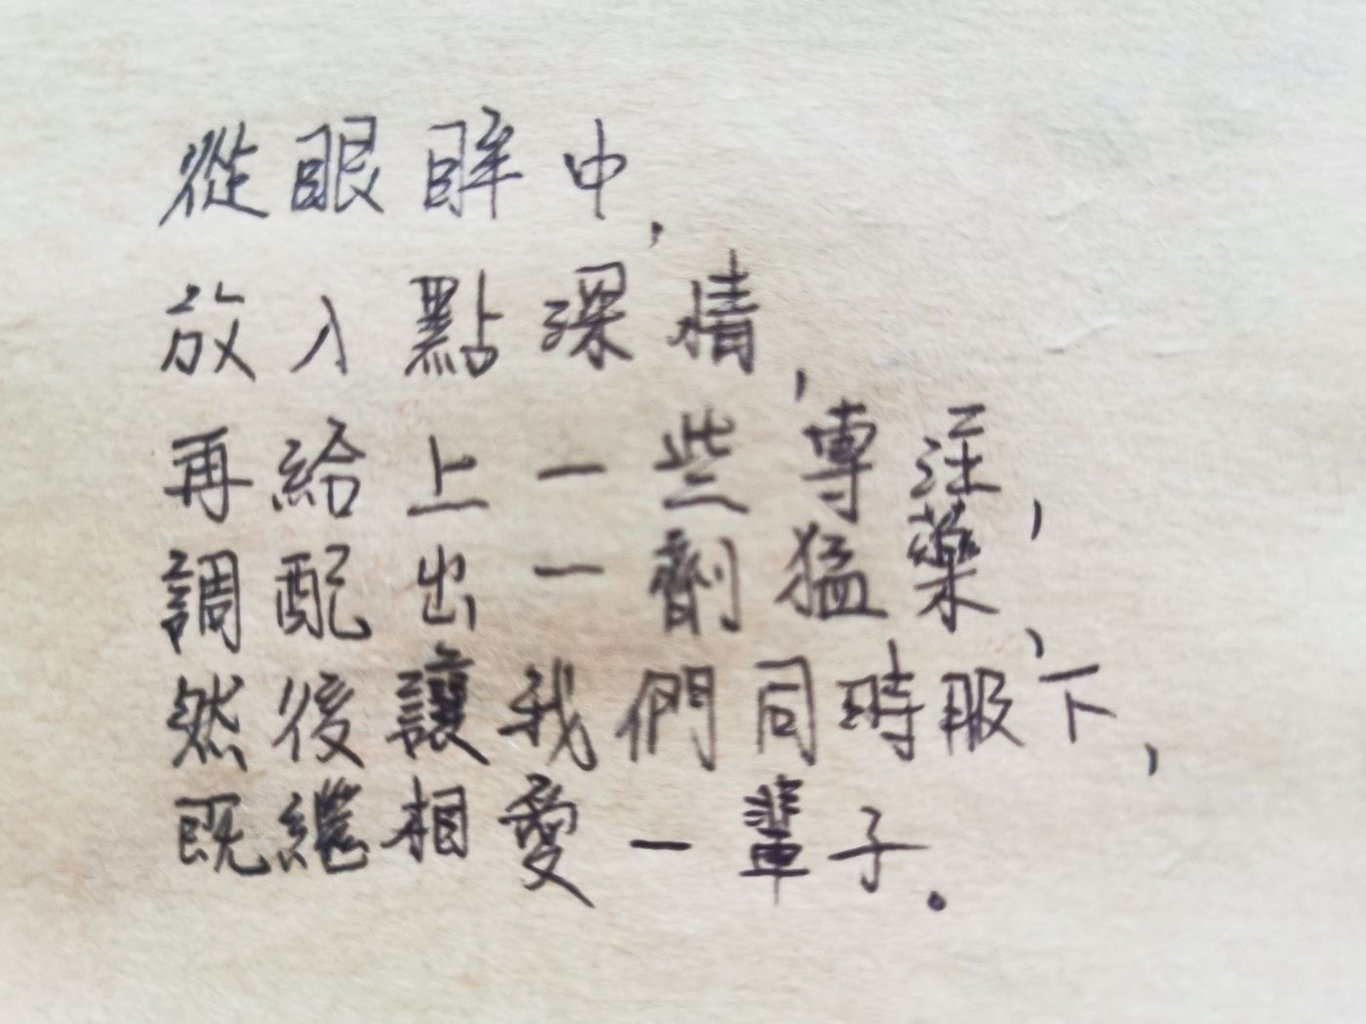 從眼眸中,
放入點深情,
再給上一些專注,
調配出一劑猛藥,
然後讓我們同時服下,
既繼相愛一輩子.